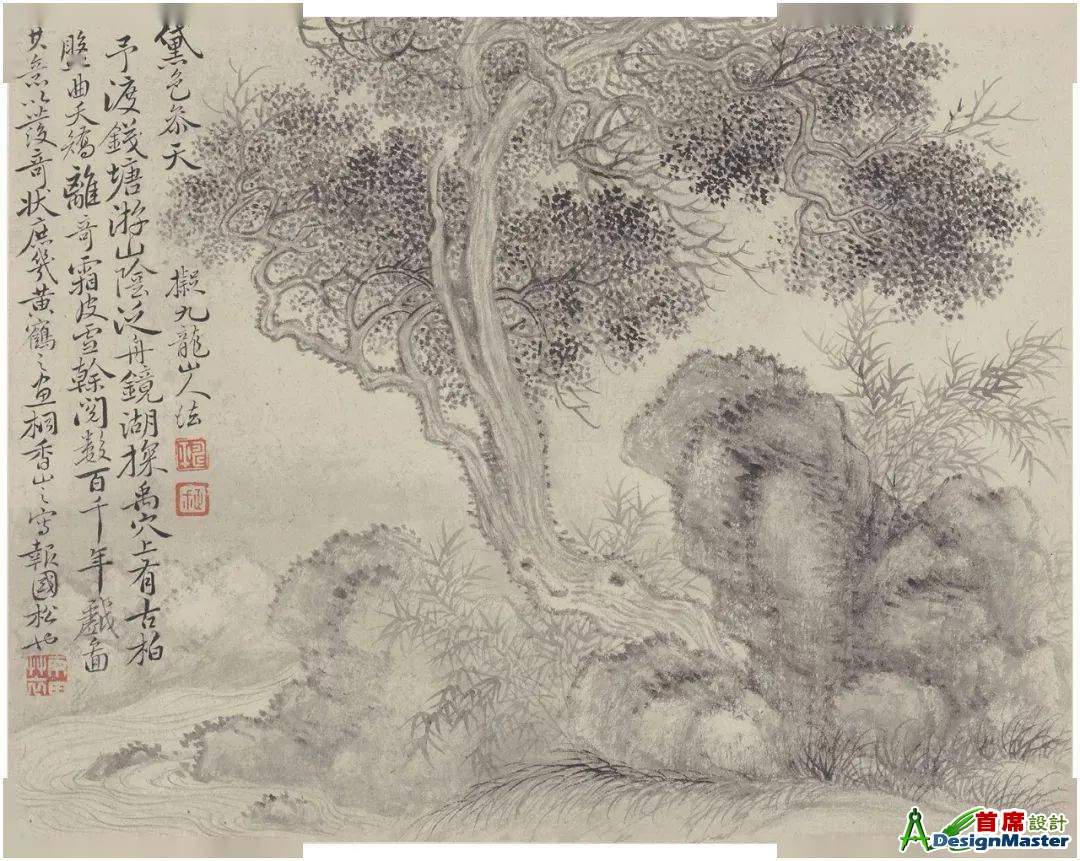 黛色參天
擬九龍山人法
予渡錢塘游山陰泛舟鏡湖探禹穴上有古柏
盤曲夭矯離奇霜皮雪榦閱數百千年戲畫
其意以發奇狀庶幾黃鶴之畫桐香山之寫報國松也
首席設計
DesignMaster